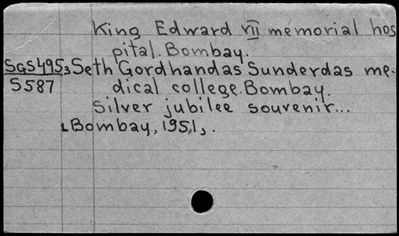 King Edward VII memorial hos
pital. Bombay.
SGS495 Seth Gordhandas Sunderdas me-
S587 dical college. Bombay.
Silver jubilee souvenir...
Bombay, 1951.